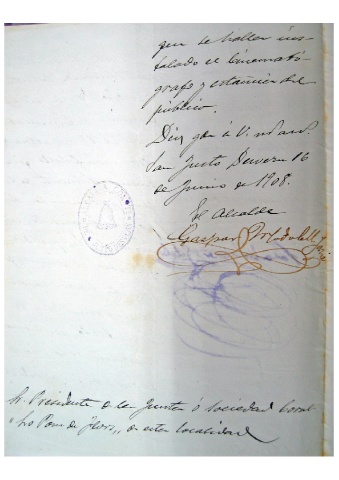 que se hallen ins-
talado el Cinemató-
grafo y estancien del
público.
Dios gde á V. m. an.s
San Justo Desvern 16
de Junio de 1908.
El Alcalde
Gaspar
Sr. Presidente de la Junta ó Sociedad Coral
"Lo Pom de Flors", de esta localidad